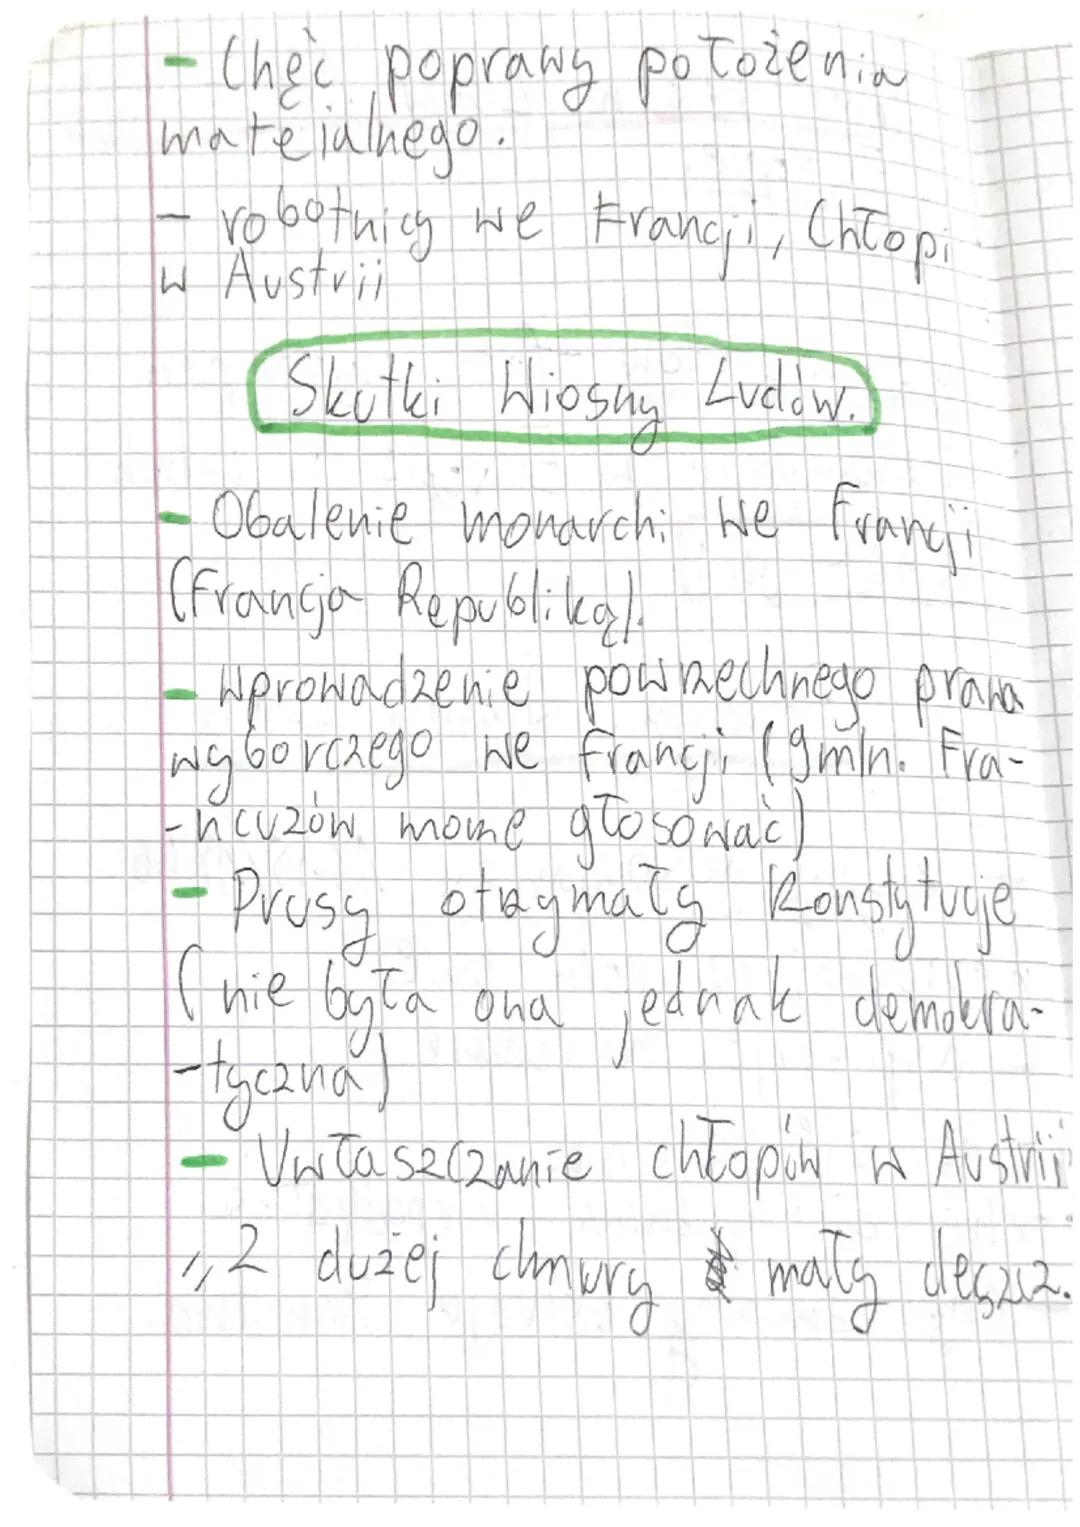 - Chęć poprawy położenia
mateialnego.
- robotnicy we Francji, Chłopi
w Austrii
Skutki Wiosny Ludów.
- Obalenie monarchi we Francji
(Francja Republiką).
- Wprowadzenie powrzechnego prawa
wyborczego we Francji (9mln. Fra-
-ncuzów może głosować)
- Prusy otrzymały Konstytucje
(nie była ona jednak demokra-
-tyczna)
- Uwłaszczanie chłopów w Austrii
„2 dużej chmury mały deszcz.